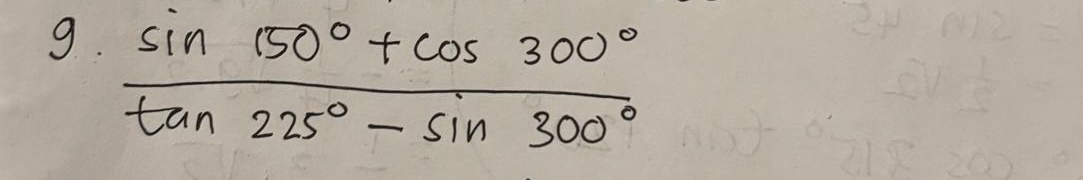 9. sin 150° + cos 300°
tan 225° - sin 300°